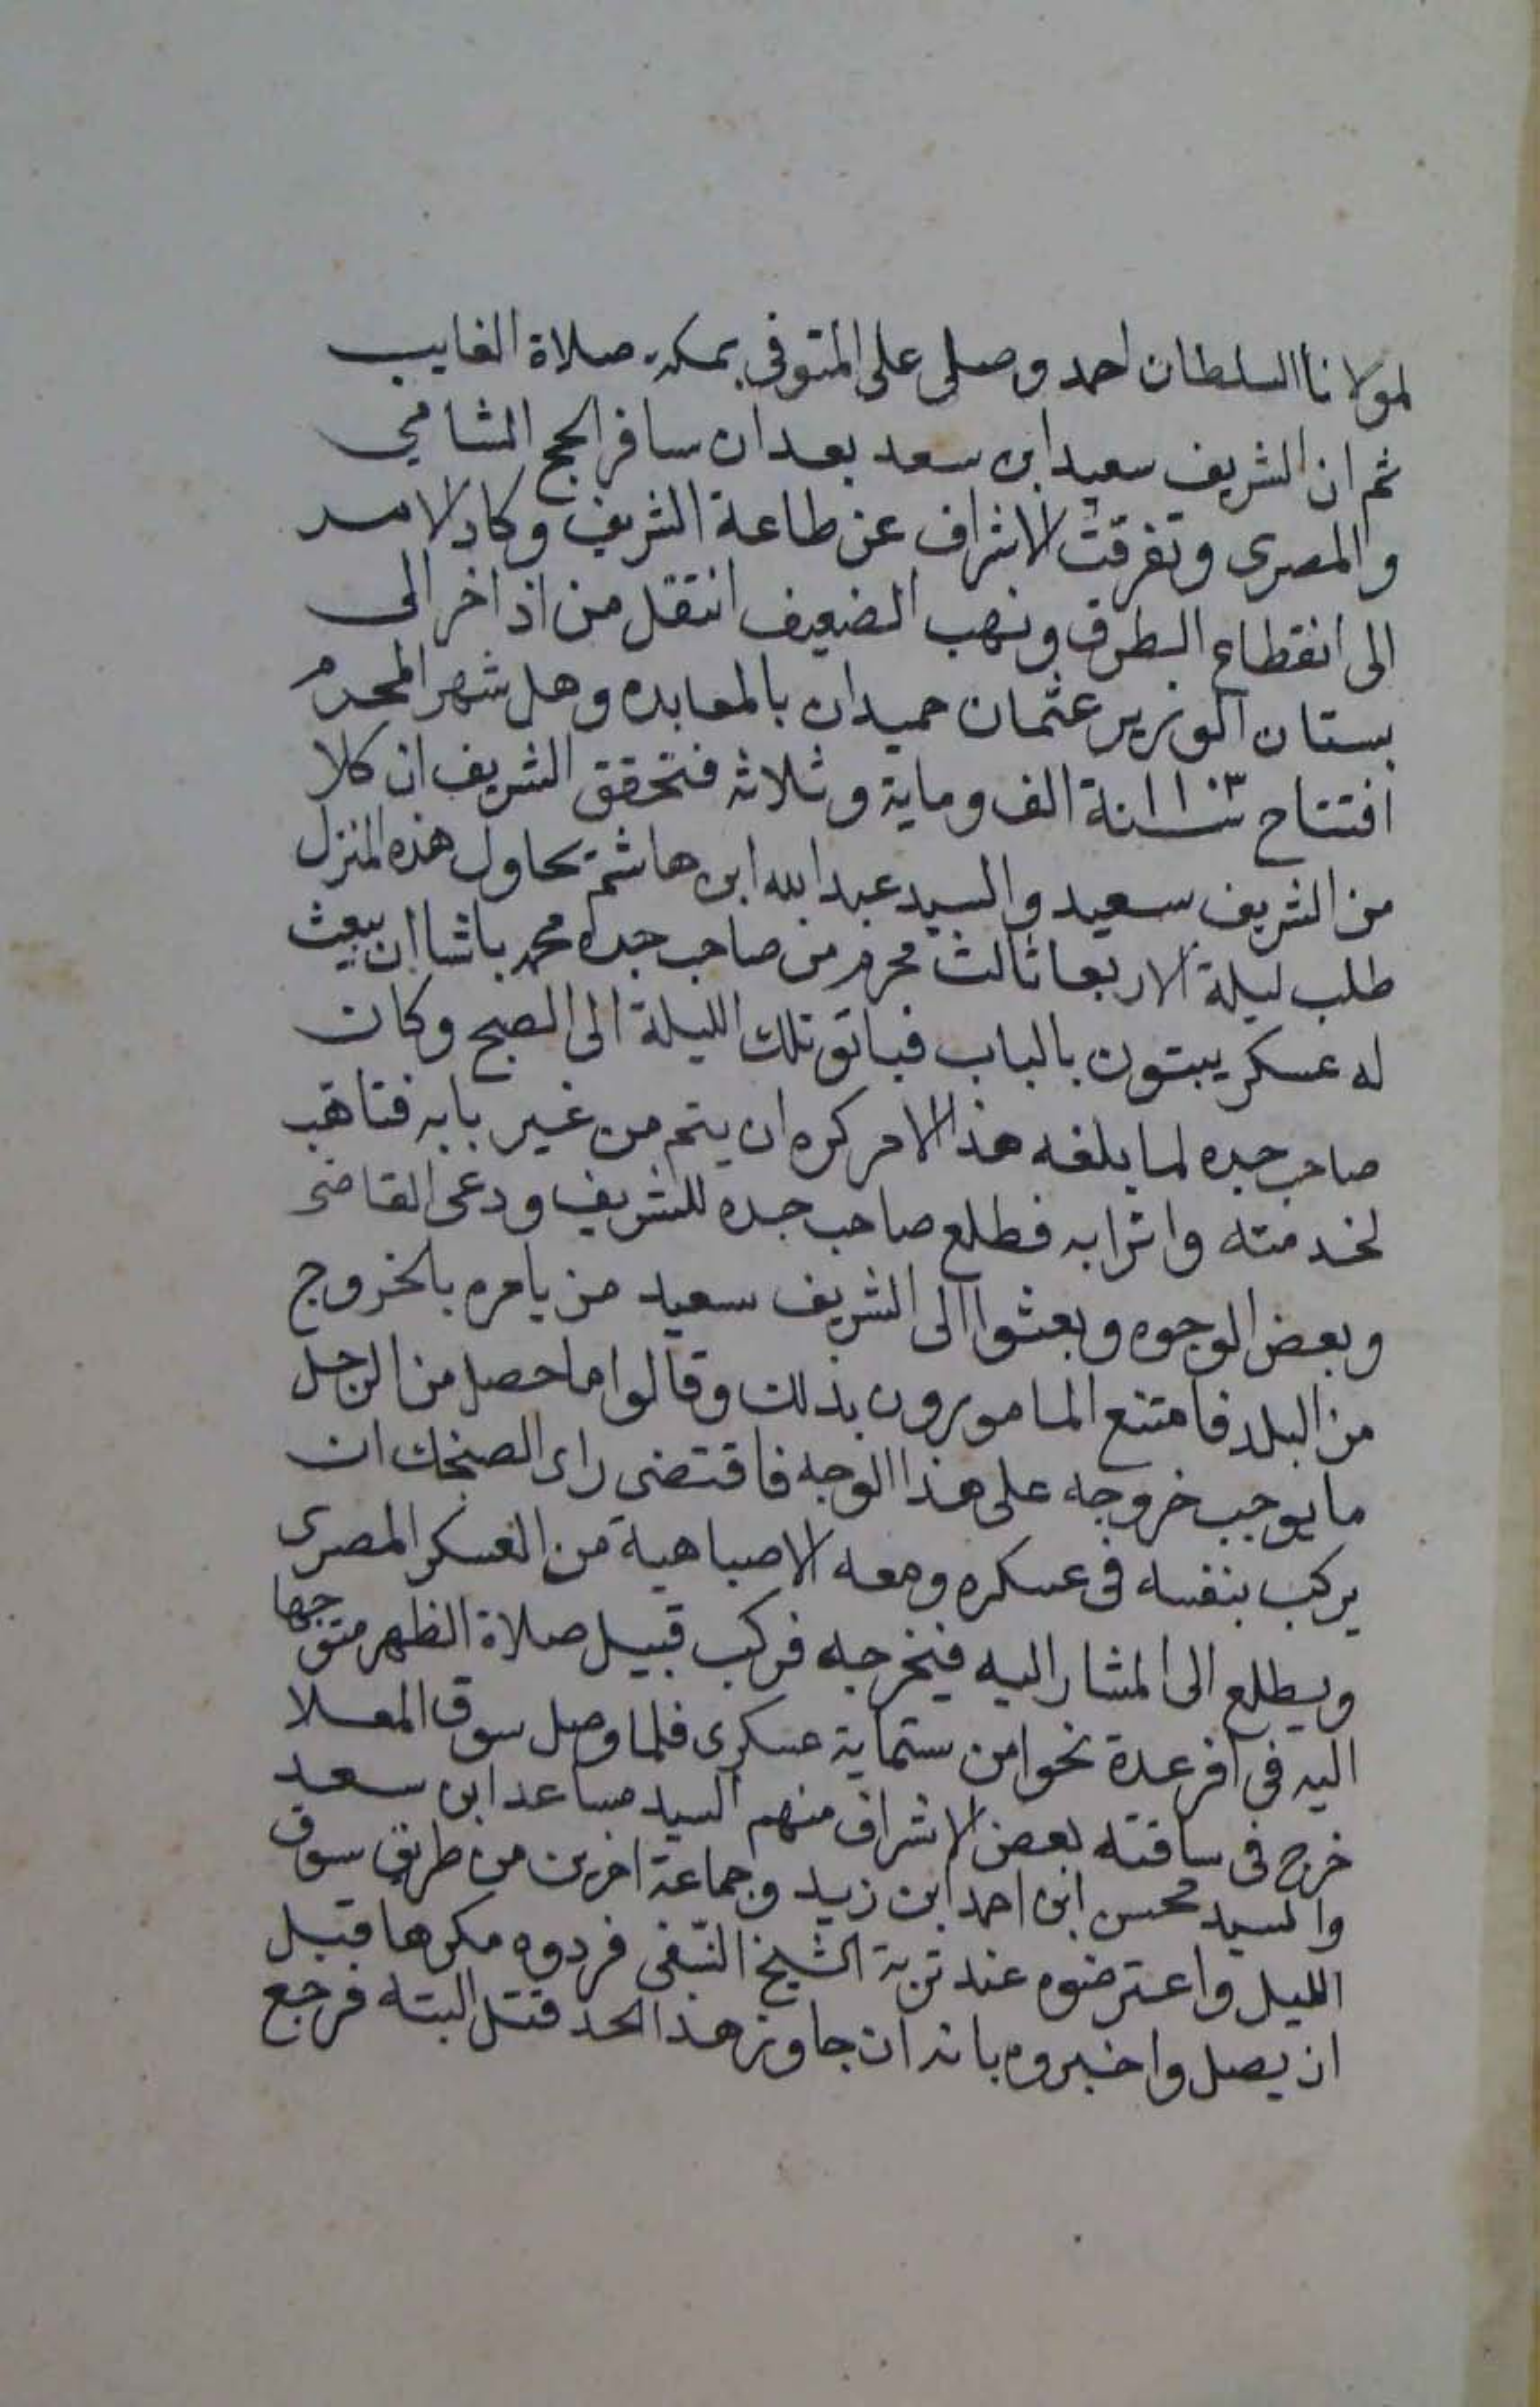 لمولانا السلطان احمد وصلى على المتوفى بمكة صلاة الغايب
ثم ان الشريف سعيد ابن سعد بعد ان سافر الحج الشامي
والمصرى وتفرقت الاشراف عن طاعة الشريف وكاد الامر
الى انقطاع الطرق ونهب الضعيف انتقل من اذاخر الى
بستان الوزير عثمان حميدان بالمعابده وهل شهر المحرم
افتتاح سنة ١١٠٣ الف وماية وثلاثه فتحقق الشريف ان كلا
من الشريف سعيد والسيد عبد الله ابن هاشم يحاول هذه المنزل
طلب ليلة الاربعا ثالث محرم من صاحب جده محمد باشا ان يبعث
له عسكر يبتون بالباب فباتو تلك الليلة الى الصبح وكان
صاحب جده لما بلغه هذا الامر كره ان يتم من غير بابه فتاهب
لخدمته واثرابه فطلع صاحب جده للشريف ودعى القاضى
وبعض الوجوه وبعثوا الى الشريف سعيد من يامره بالخروج
من البلد فامتنع المامورون بذلك وقالوا ما حصل من الرجل
ما يوجب خروجه على هذا الوجه فاقتضى راى الصنجك ان
يركب بنفسه فى عسكره ومعه الاصباهية من العسكر المصرى
ويطلع الى المشار اليه فيخرجه فركب قبيل صلاة الظهر متوجها
اليه فى افر عدة نحوا من ستماية عسكرى فلما وصل سوق المعلا
خرج فى ساقته بعض الاشراف منهم السيد مساعد ابن سعد
والسيد محسن ابن احمد ابن زيد وجماعة اخرين من طريق سوق
الليل واعترضوه عند تربة الشيخ النسفى فردوه مكرها قبل
ان يصل واخبروه بانه ان جاوز هذا الحد قتل البته فرجع